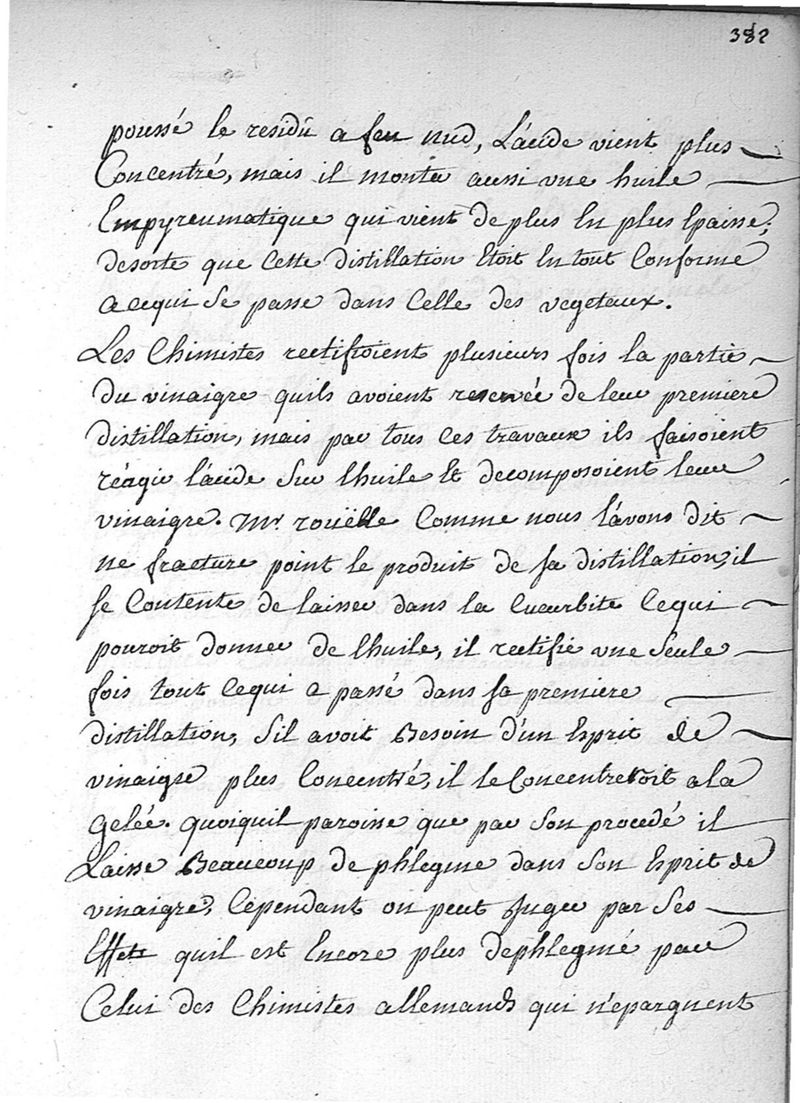 382
poussé le residû a feu nud, L'acide vient plus
Concentré, mais il monte aussi vne huile
Empyreumatique qui vient de plus En plus Epaisse;
desorte que Cette distillation Etoit En tout Conforme
a cequi Se passe dans Celle des vegetaux.
Les Chimistes rectifioient plusieurs fois la partie
du vinaigre quils avoient reservée de leur premiere
distillation, mais par tous Ces travaux ils faisoient
réagir l'acide Sur l'huile Et decomposoient leur
vinaigre. Mr. rouëlle Comme nous l'avons dit
ne fracture point le produit de sa distillation, il
se Contente de laisser dans la Cucurbite Cequi
pouroit donner de l'huile, il rectifie vne Seule
fois tout Cequi a passé dans sa premiere
distillation, S'il avoit Besoin d'un Esprit de
vinaigre plus Concentré, il le Concentreroit a la
Gelée. quoiquil paroisse que par Son procedé il
Laisse Beaucoup de phlegme dans Son Esprit de
vinaigre, Cependant on peut Juger par Ses
Effets quil est Encore plus dephlegmé par
Celui des Chimistes allemands qui n'epargnent